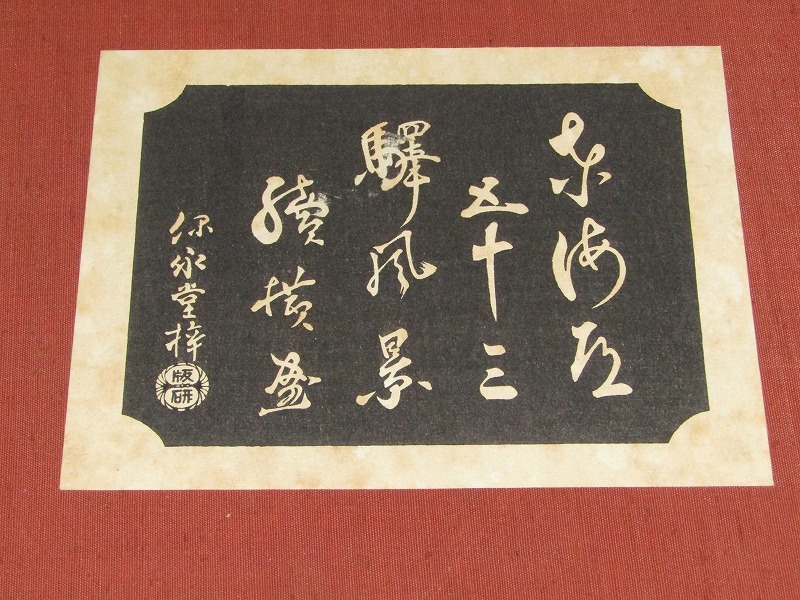 東海道
五十三
驛風景
續横画
保永堂梓
版研